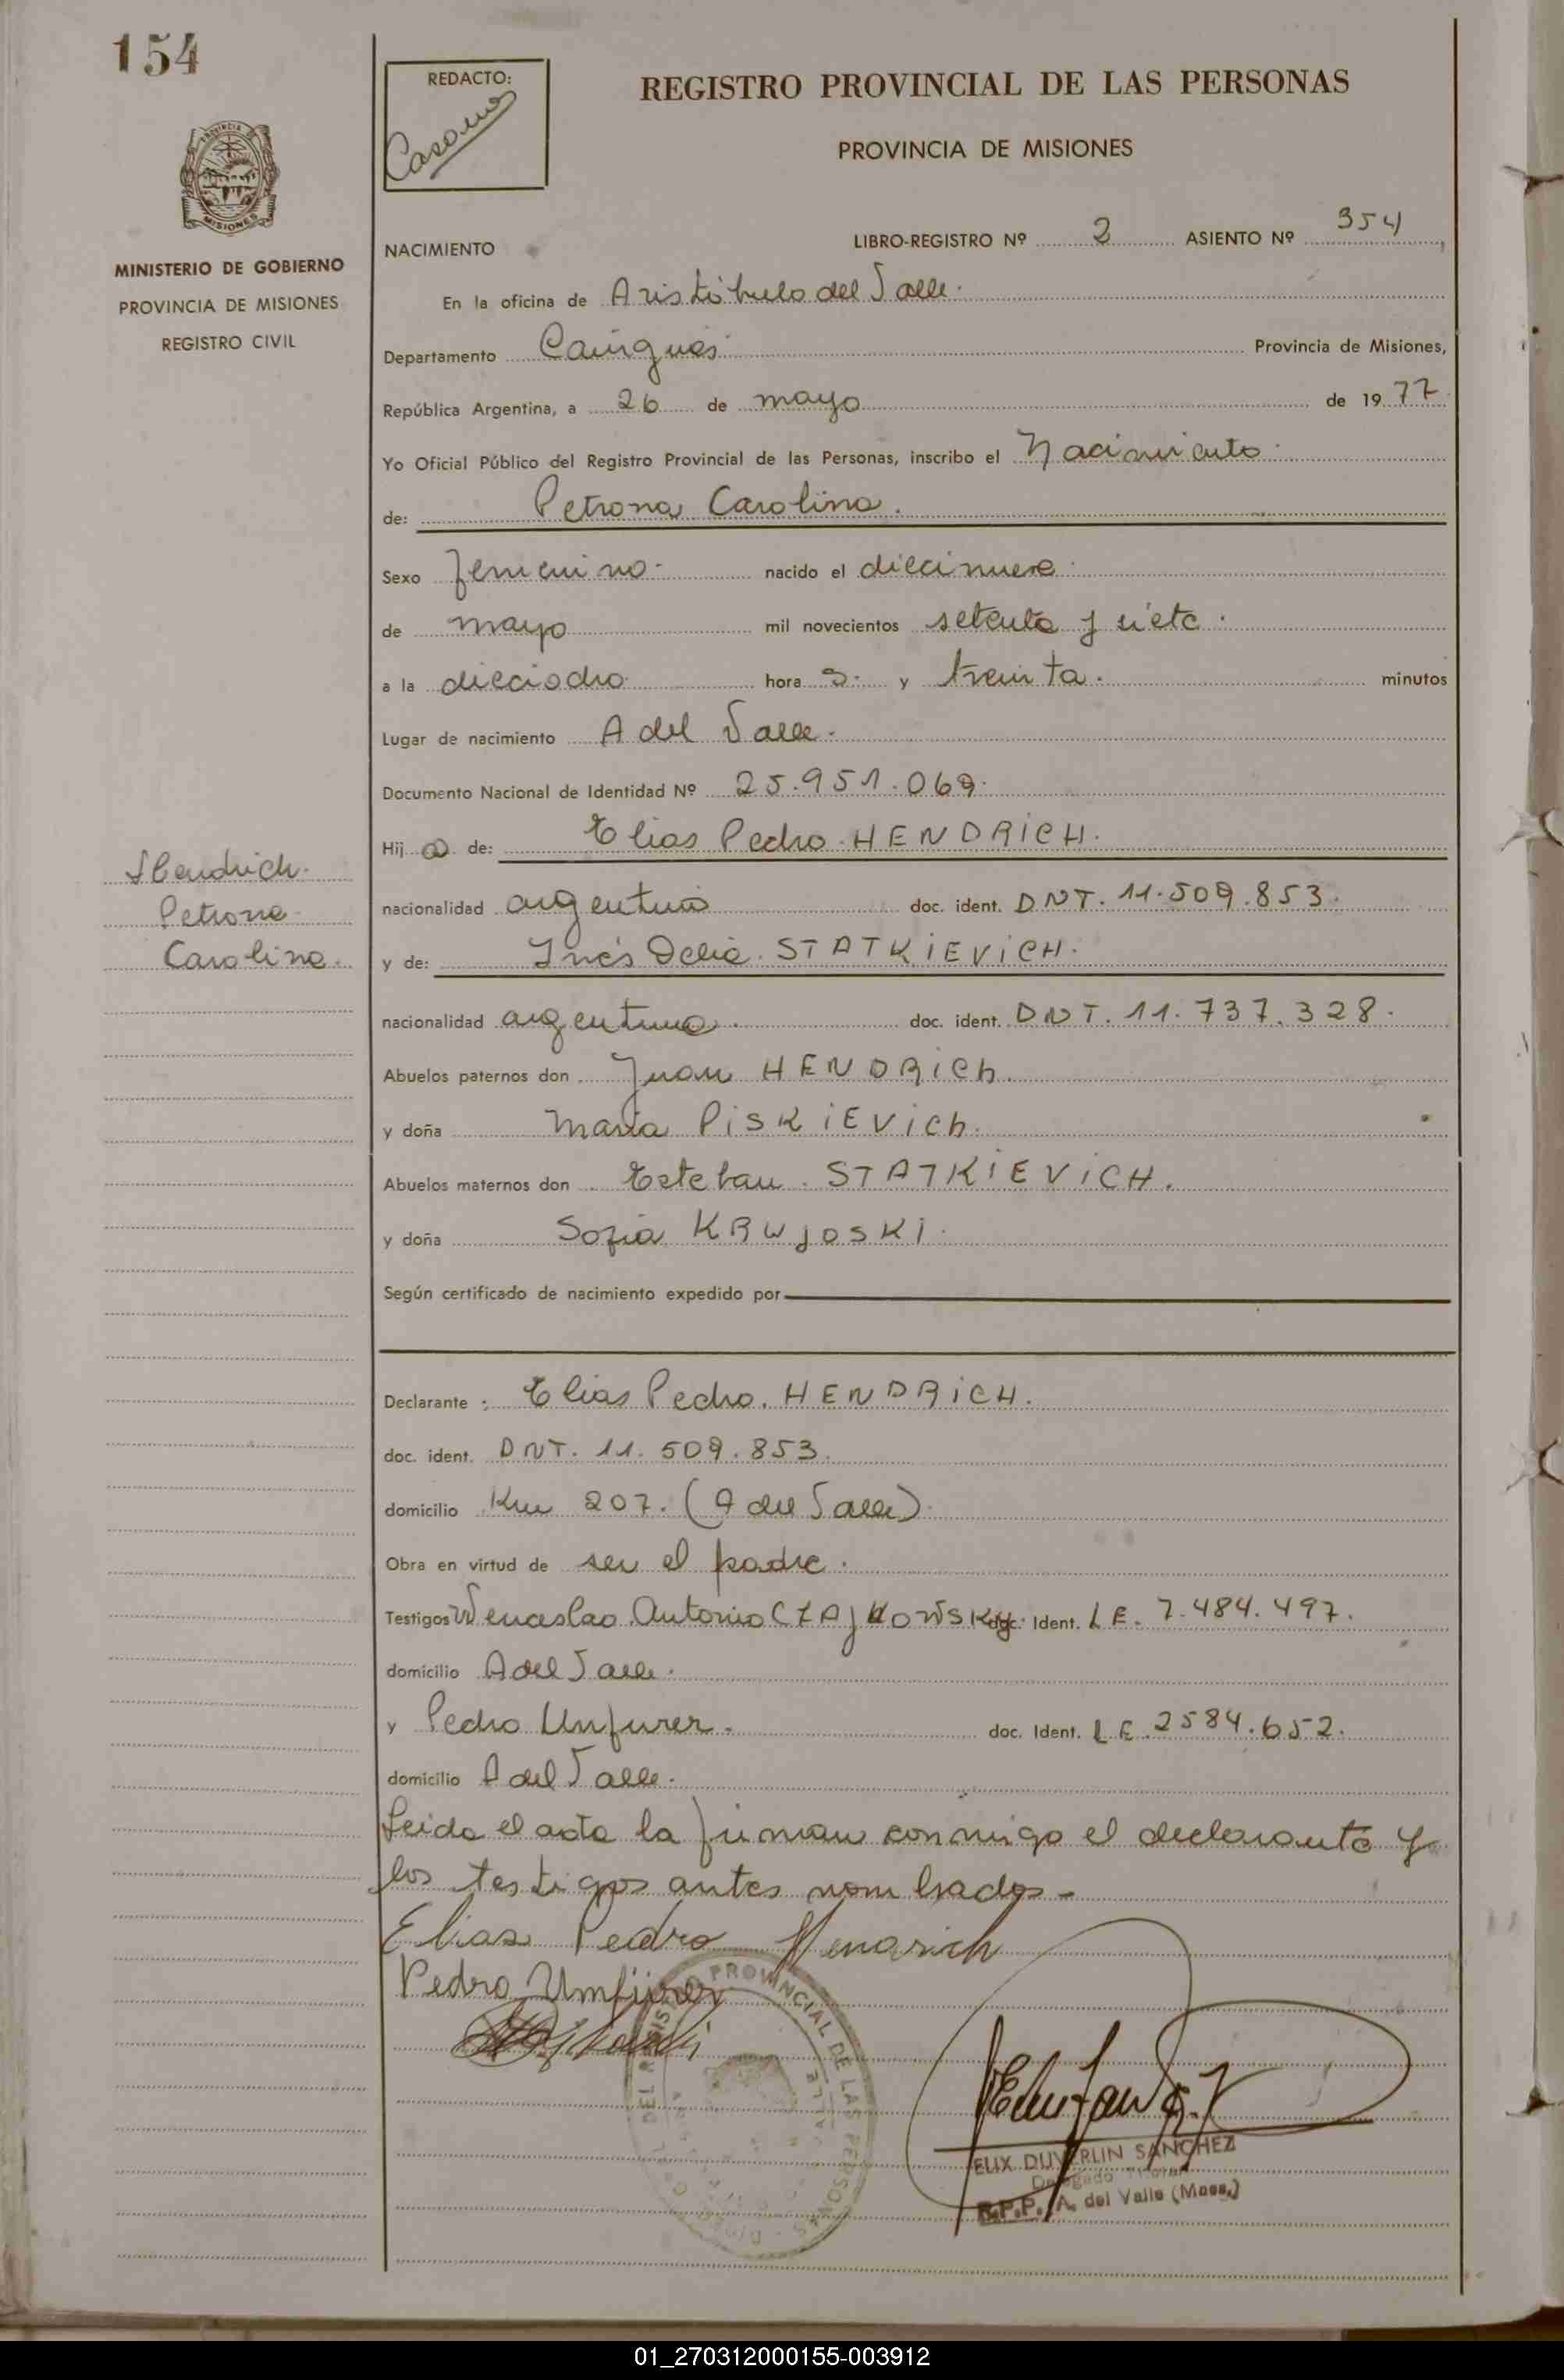 154
REDACTO:
REGISTRO PROVINCIAL DE LAS PERSONAS
PROVINCIA DE MISIONES
PROVINCIA DE
MISIONES
MINISTERIO DE GOBIERNO
PROVINCIA DE MISIONES
REGISTRO CIVIL
NACIMIENTO LIBRO-REGISTRO Nº 2 ASIENTO Nº 354
En la oficina de Aristóbulo del Valle.
Departamento Cainguás. Provincia de Misiones,
República Argentina, a 26 de mayo de 1977
Yo Oficial Público del Registro Provincial de las Personas, inscribo el Nacimiento.
de: Petrona Carolina.
Sexo femenino. nacido el diecinueve.
de mayo mil novecientos setenta y siete.
a la dieciocho hora s. y treinta. minutos
Lugar de nacimiento A del Valle.
Documento Nacional de Identidad Nº 25.951.069.
Hij a de: Elias Pedro HENDRiCH.
Hendrich.
Petrona
Carolina.
nacionalidad argentino doc. ident. DNT. 11.509.853.
y de: Inés Delia. STATKiEViCH.
nacionalidad argentina. doc. ident. DNT. 11.737.328.
Abuelos paternos don Juan HENDRiCh.
y doña Maria PiSKiEVich.
Abuelos maternos don Esteban. STATKiEViCH.
y doña Sofia KRWJOSKi.
Según certificado de nacimiento expedido por
Declarante: Elias Pedro. HENDRiCH.
doc. ident. DNT. 11.509.853.
domicilio Km 207. (A del Valle).
Obra en virtud de ser el padre.
Testigos Wenceslao Antonio CZAJKOWSKy. doc. Ident. LE. 7.484.497.
domicilio A del Valle.
y Pedro Unfurer. doc. Ident. LE. 2584.652.
domicilio A del Valle.
Leida el acta la firman conmigo el declarante y
los testigos antes nombrados-
Elias Pedro Hendrich
Pedro Umfürer
DEL REGISTRO PROVINCIAL DE LAS PERSONAS
ELIX DUVERLIN SANCHEZ
Delegado Titular
R.P.P. A. del Valle (Mnes.)
01_270312000155-003912